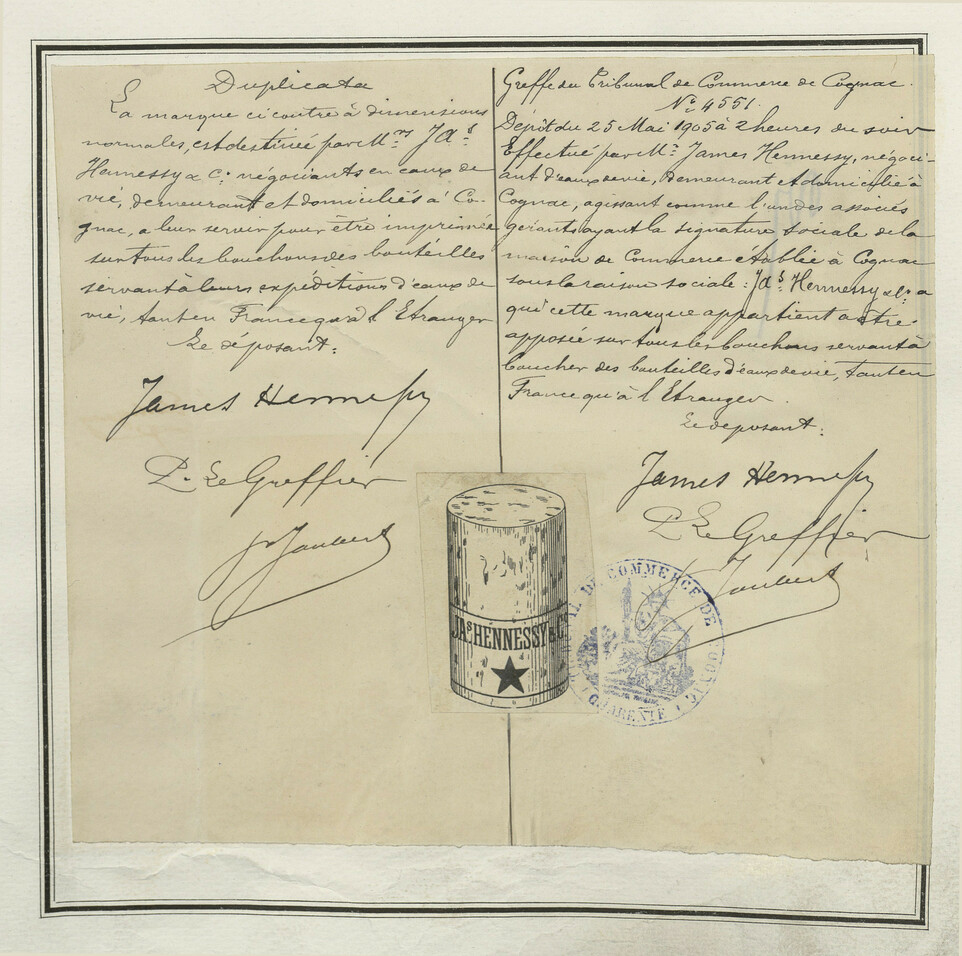 Duplicata
La marque ci contre à dimensions
normales, est destinée par Mrs JAs
Hennessy & Co négociants en eaux de
vie, demeurant et domiciliés à Co-
gnac, a leur servir pour être imprimée
sur tous les bouchons des boutéilles
servant à leurs expéditions d'eaux de
vie, tant en France qu'à l'Etranger
Le déposant:
James Hennessy
P. Le Greffier
Jaubert
Greffe du Tribunal de Commerce de Cognac.
No 4551.
Dépôt du 25 Mai 1905 à 2 heures du soir
Effectué par Mr James Hennessy, négoci-
ant d'eaux de vie, demeurant et domicilié à
Cognac, agissant comme l'un des associés
gérants ayant la signature sociale de la
maison de Commerce établie à Cognac
sous la raison sociale: JAs Hennessy & Co a
qui cette marque appartient a être
apposée sur tous les bouchons servant à
boucher des bouteilles d'eaux de vie, tant en
France qu'à l'Etranger.
Le déposant:
James Hennessy
P. Le Greffier
Jaubert
JAs HENNESSY & Co
TRIBUNAL DE COMMERCE DE COGNAC
(CHARENTE)